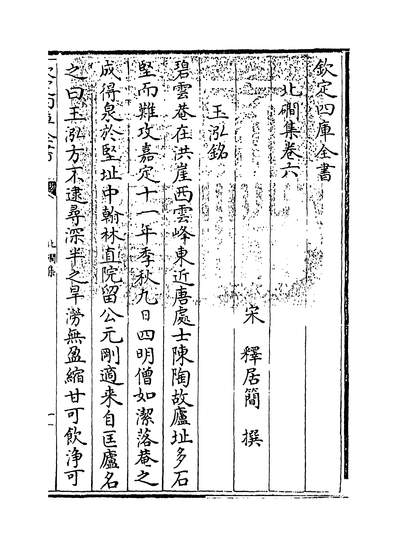 欽定四庫全書
北磵集卷六
宋 釋居簡 撰
玉泓銘
碧雲菴在洪崖西雲峰東近唐處士陳陶故廬址多石
堅而難攻嘉定十一年季秋九日四明僧如潔落菴之
成得泉於堅址中翰林直院留公元剛適来自匡廬名
之曰玉泓方不逮尋深半之旱澇無盈縮甘可飲浄可
北磵集